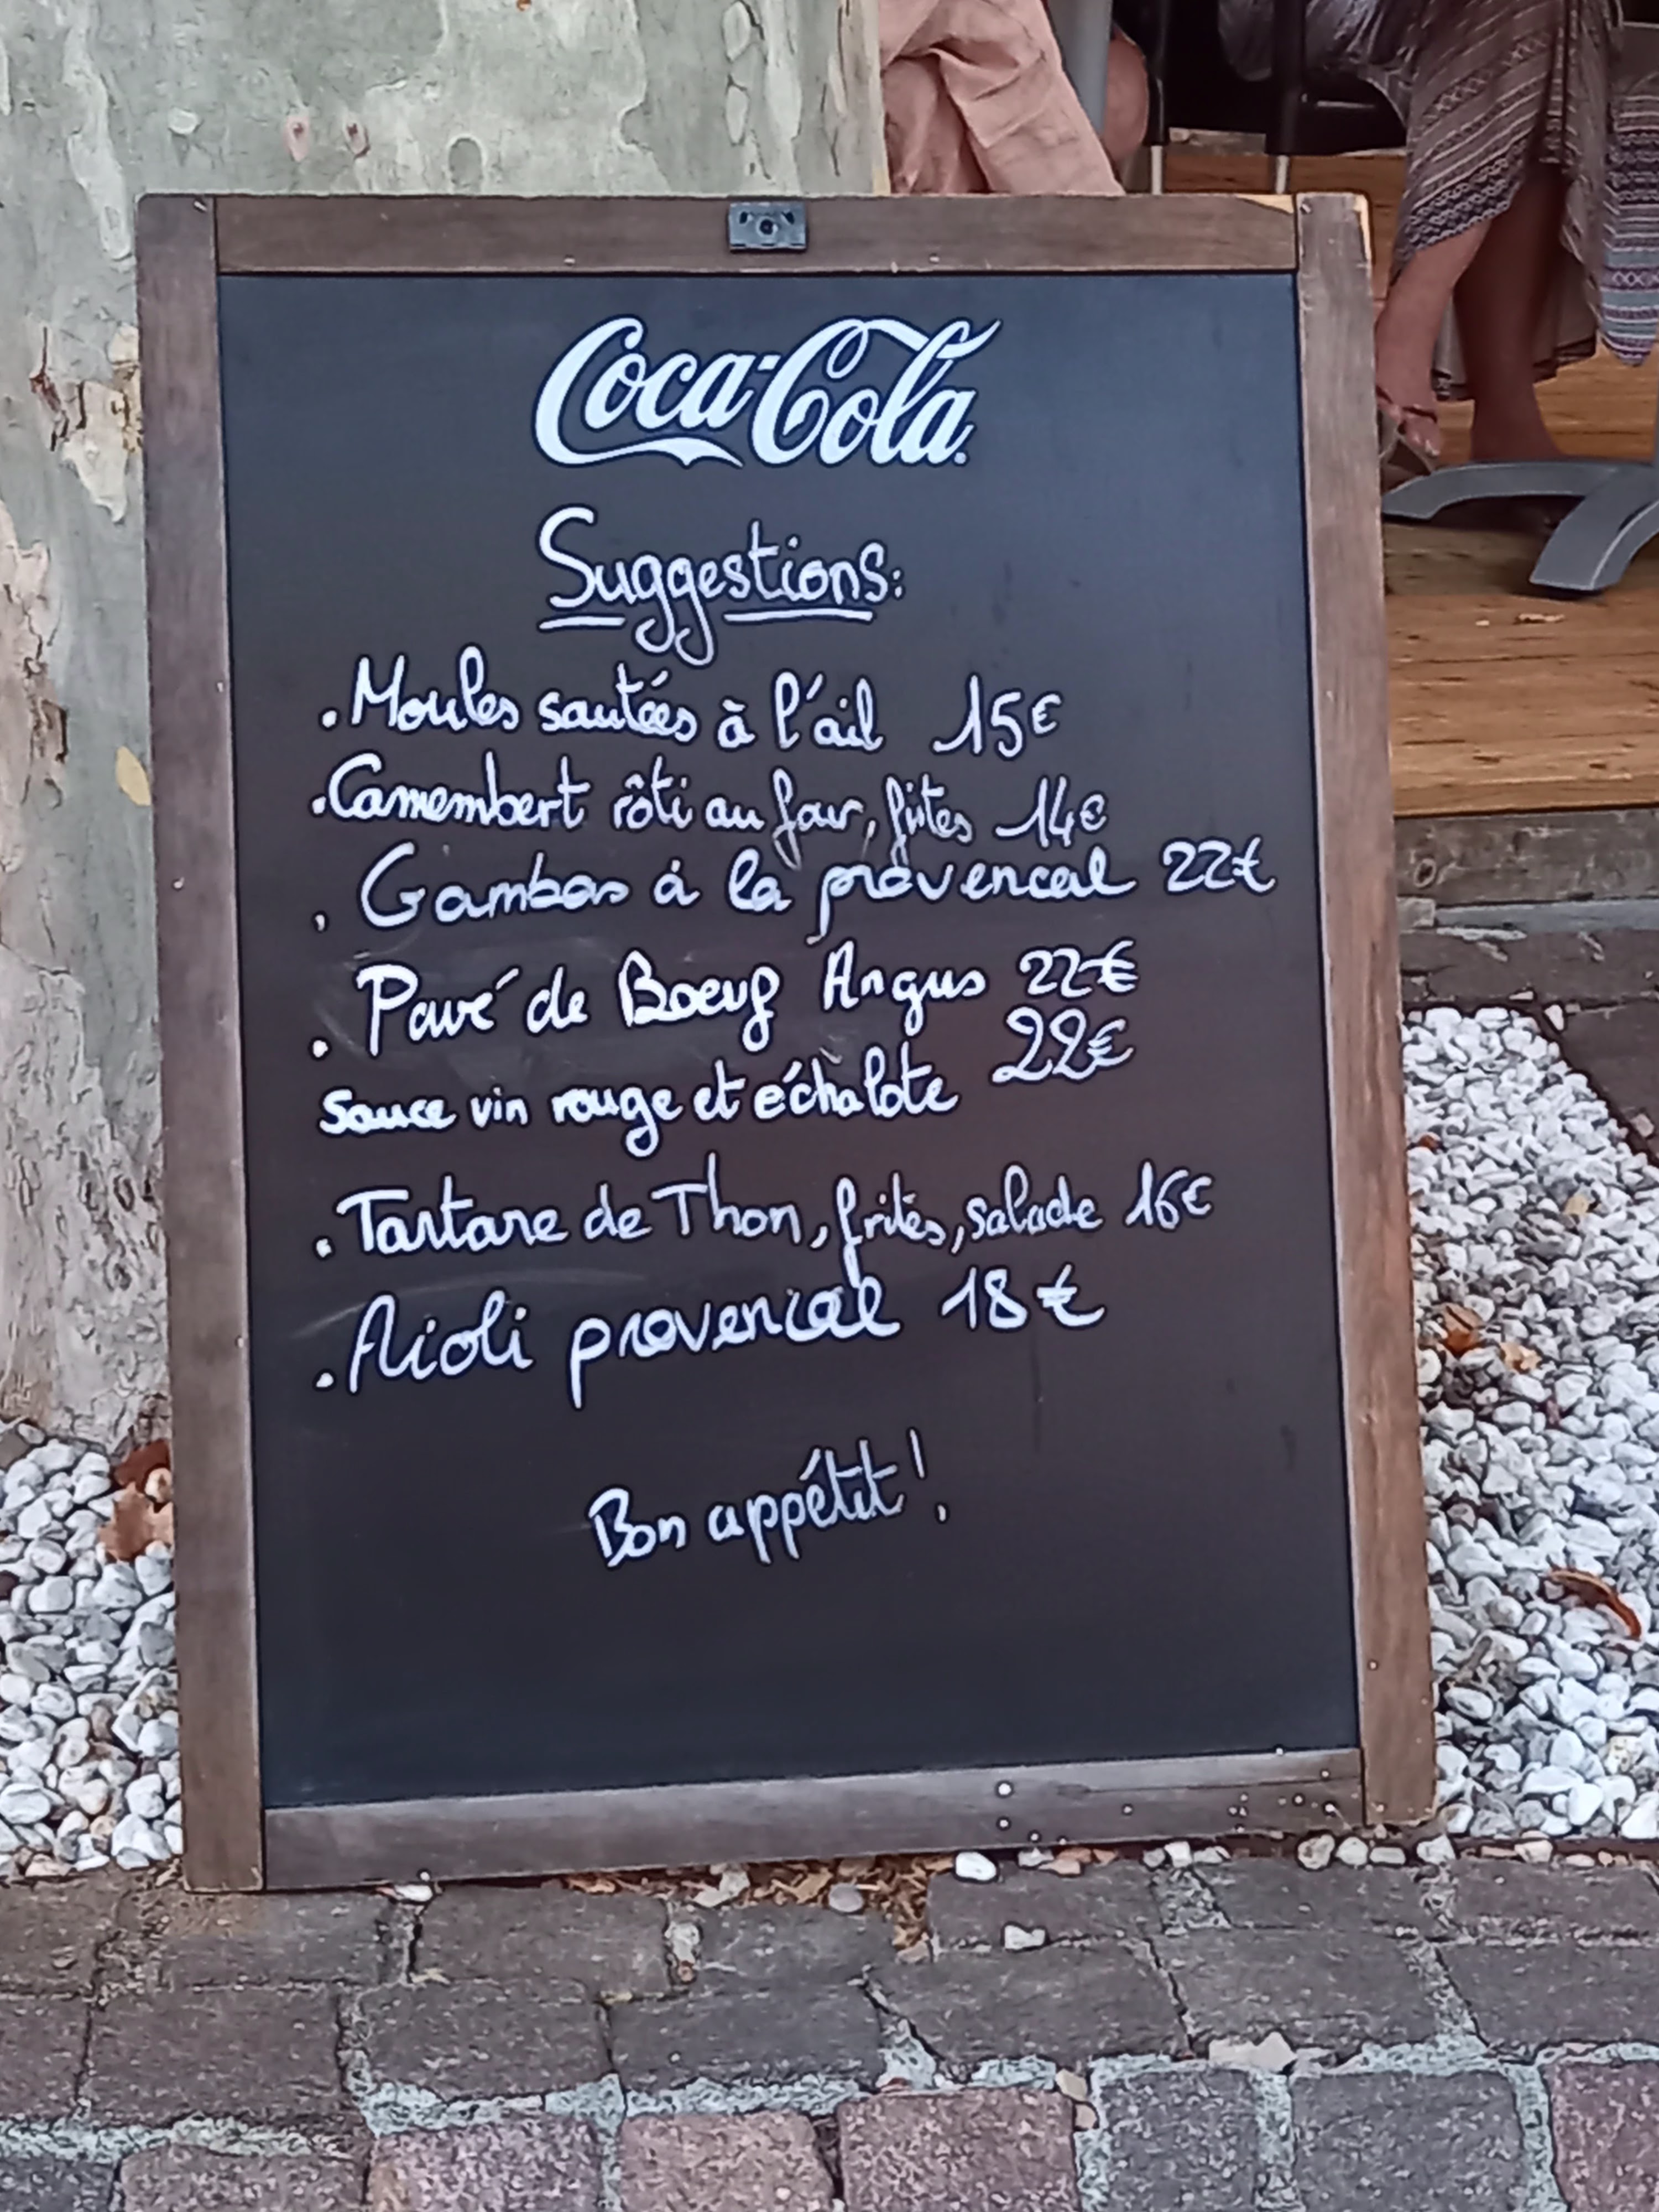 Coca-Cola
Suggestions:
. Moules sautées à l'ail 15€
. Camembert rôti au four, frites 14€
. Gambas à la provencal 22€
. Pavé de Boeuf Angus 22€
sauce vin rouge et échalote 22€
. Tartare de Thon, frites, salade 16€
. Aioli provencal 18€
Bon appétit !